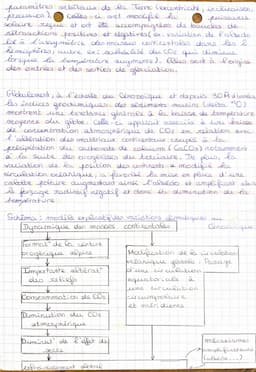 paramètres orbitaux de la Terre (excentricité, inclinaison,
précession). Celles-ci ont modifié la puissance
solaire reçue et ont été accompagnées de boucles de
rétroactions positives et négatives (ex: variation de l'albédo
liée à l'asymétrie des masses continentales dans les 2
hémisphères, autre ex: solubilité du CO2 qui diminue
lorsque la température augmente). Elles sont à l'origine
des entrées et des sorties de glaciation.
Globalement, à l'échelle du Cénozoïque et depuis 30 Millions
les indices géochimiques des sédiments marins
montrent une tendance générale à la baisse de température
moyenne du globe. Celle-ci apparait associée à une baisse
de concentration atmosphérique de CO2 en relation avec
l'altération des matériaux continentaux couplée à la
précipitation du carbonate de calcium (CaCO3) notamment
à la suite des orogenèses du tertiaire. De plus, la
variation de la position des continents a modifié la
circulation océanique, a favorisé la mise en place d'une
calotte polaire augmentant ainsi l'albédo et amplifiant donc
le forçage radiatif négatif et donc la diminution de la
température
Schéma : modèle explicatif des variations climatiques au Cénozoïque
Dynamique des masses continentales
Format° de la ceinture
orogénique alpine
Importante altérat°
des reliefs
Consommation du CO2
Diminution du CO2
atmosphérique
Diminut° de l'effet de
serre
Refroidissement global
Modification de la circulation
océanique globale : Passage
d'une circulation
équatoriale à
une circulation
circumpolaire
et méridienne
mécanismes
amplificateurs
(albédo...)